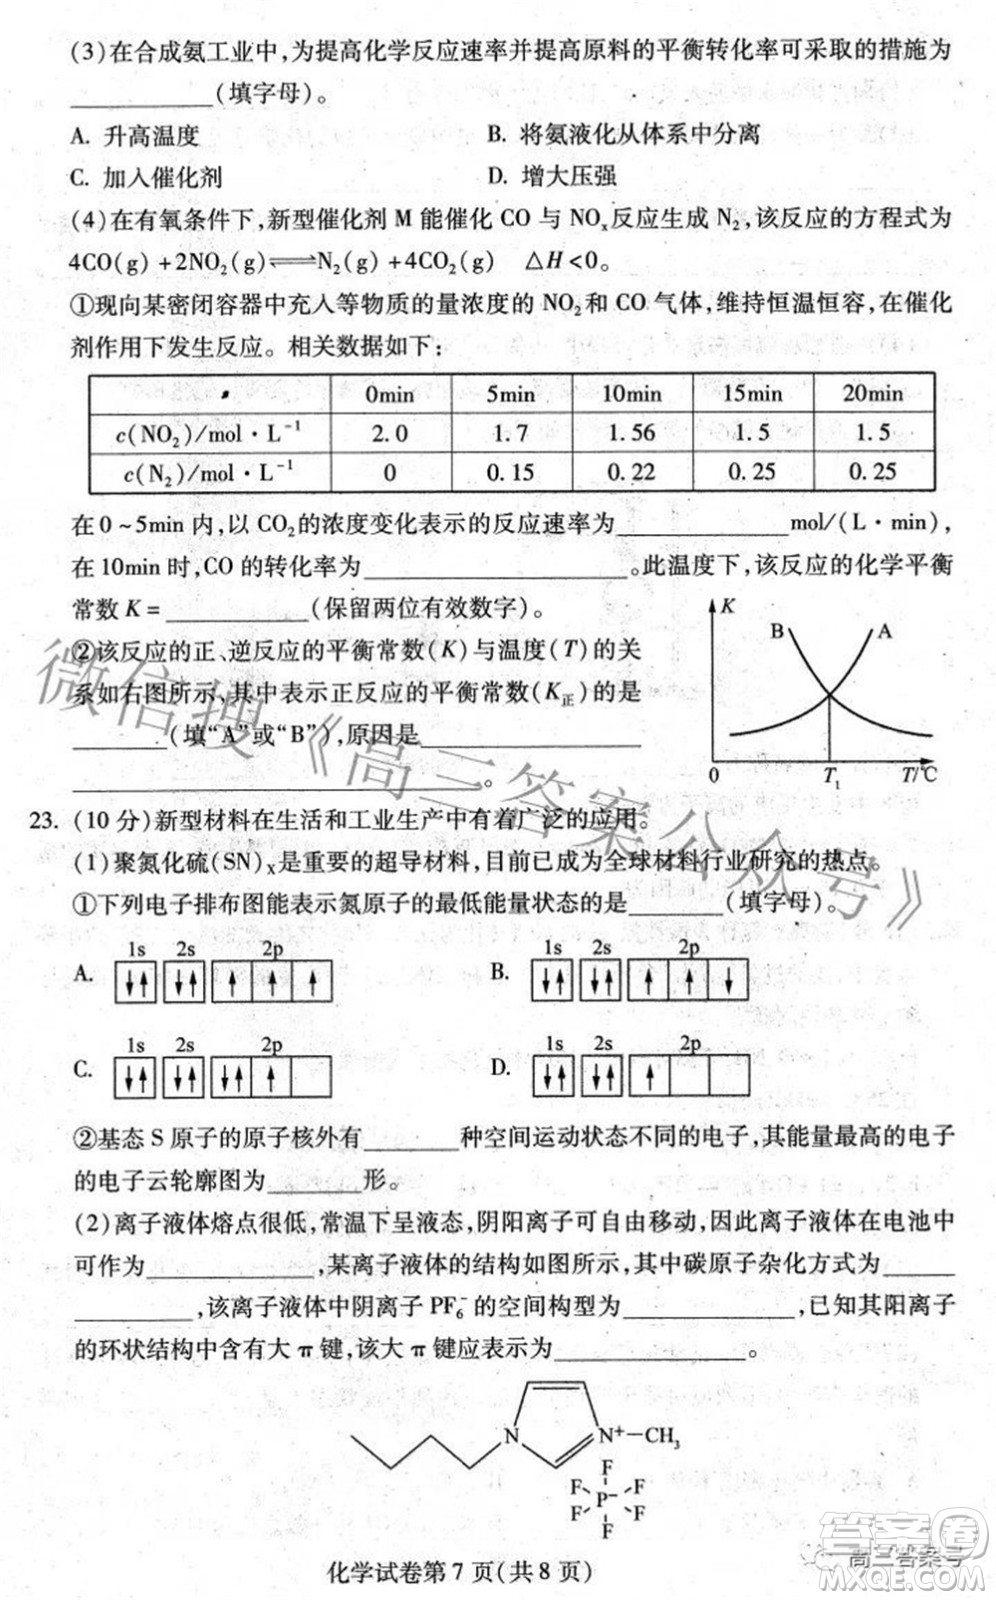 (3)在合成氨工业中,为提高化学反应速率并提高原料的平衡转化率可采取的措施为
________(填字母)。
A. 升高温度 B. 将氨液化从体系中分离
C. 加入催化剂 D. 增大压强
(4)在有氧条件下,新型催化剂 M 能催化 CO 与 NOx反应生成 N2,该反应的方程式为
4CO(g)+2NO2(g)⇌N2(g)+4CO2(g) △H<0。
①现向某密闭容器中充入等物质的量浓度的 NO2和 CO 气体,维持恒温恒容,在催化
剂作用下发生反应。相关数据如下:
0min 5min 10min 15min 20min
c(NO2)/mol·L-1 2.0 1.7 1.56 1.5 1.5
c(N2)/mol·L-1 0 0.15 0.22 0.25 0.25
在 0~5min 内,以 CO2的浓度变化表示的反应速率为________mol/(L·min),
在 10min 时,CO 的转化率为________。此温度下,该反应的化学平衡
常数 K=________(保留两位有效数字)。
②该反应的正、逆反应的平衡常数(K)与温度(T)的关
系如右图所示,其中表示正反应的平衡常数(K正)的是
________(填“A”或“B”),原因是________
________。
K
B A
0 T1 T/℃
23. (10 分)新型材料在生活和工业生产中有着广泛的应用。
(1)聚氮化硫(SN)x是重要的超导材料,目前已成为全球材料行业研究的热点。
①下列电子排布图能表示氮原子的最低能量状态的是________(填字母)。
1s 2s 2p 1s 2s 2p
A. ↓↑ ↓↑ ↑ ↑ B. ↓↑ ↓↑ ↑ ↑ ↓
1s 2s 2p 1s 2s 2p
C. ↓↑ ↓↑ ↓↑ ↑ D. ↓↑ ↓↑ ↑
②基态 S 原子的原子核外有________种空间运动状态不同的电子,其能量最高的电子
的电子云轮廓图为________形。
(2)离子液体熔点很低,常温下呈液态,阴阳离子可自由移动,因此离子液体在电池中
可作为________,某离子液体的结构如图所示,其中碳原子杂化方式为________
________,该离子液体中阴离子 PF6-的空间构型为________,已知其阳离子
的环状结构中含有大 π 键,该大 π 键应表示为________。
N N+—CH3
F
F F
P-
F F
F
化学试卷第 7 页(共 8 页)
微信搜《高三答案公众号》
高三答案号
答案圈
MXQE.COM